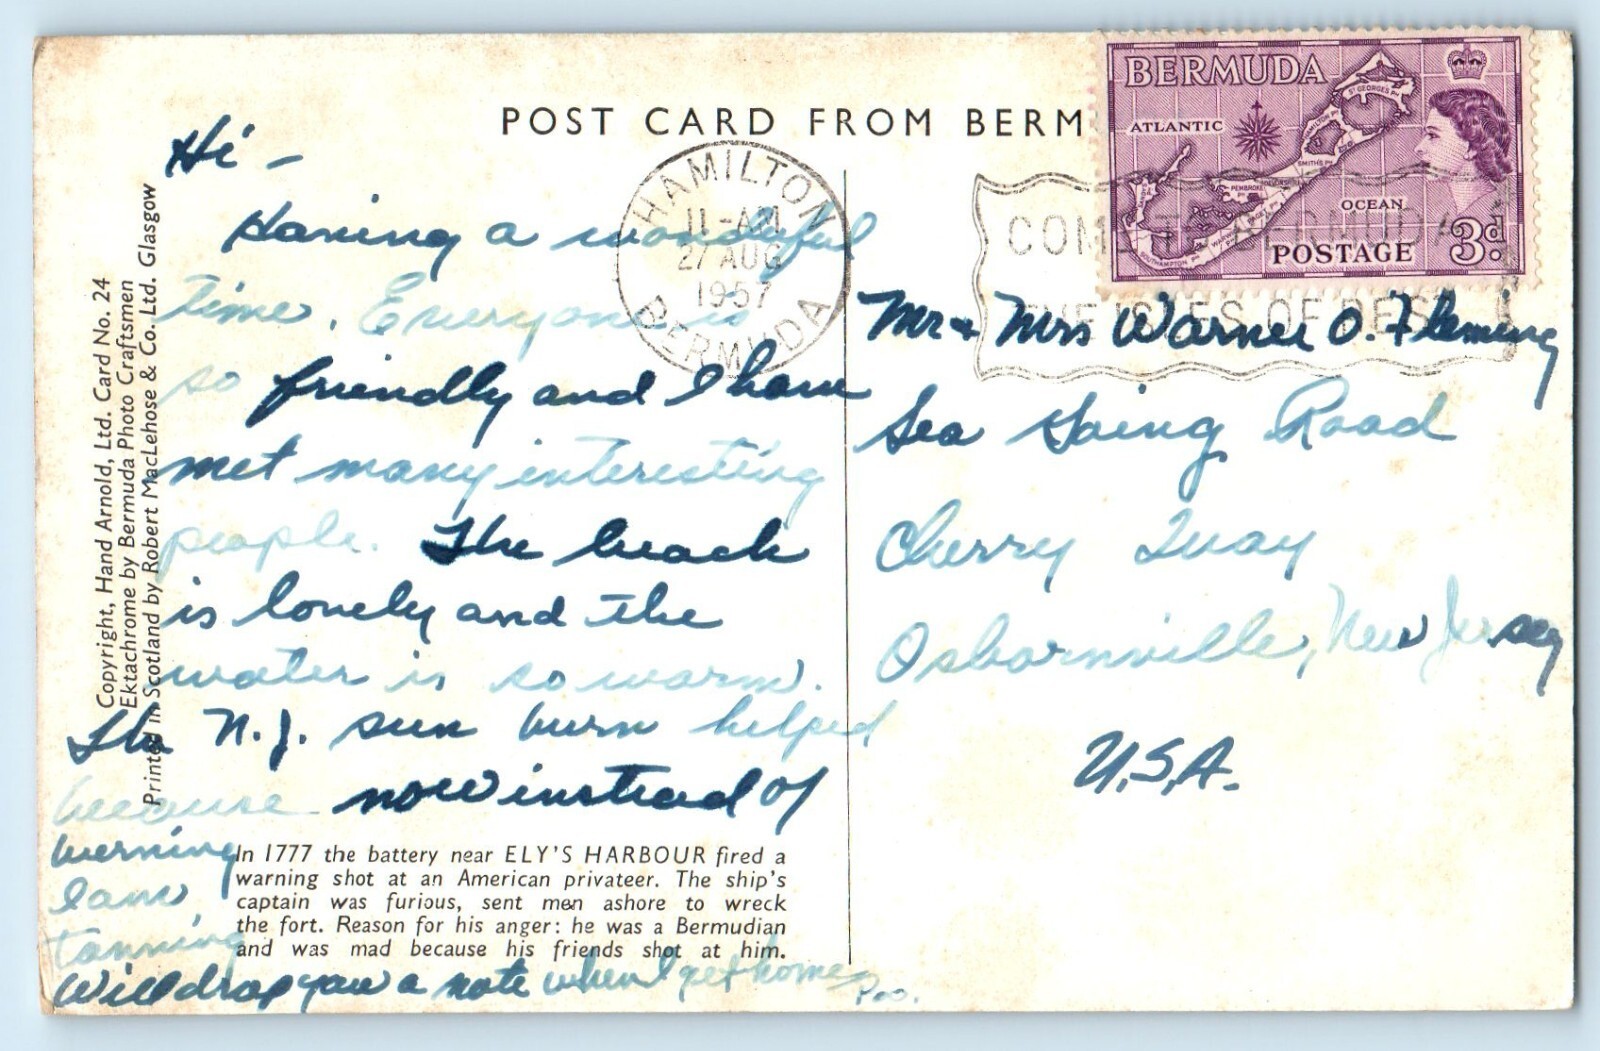 POST CARD FROM BERM
BERMUDA
ATLANTIC
ST GEORGES PH
HAMILTON PH
SMITHS PH
DEVONSHIRE
PEMBROKE PH
PAGET PH
WARWICK PH
SOUTHAMPTON PH
OCEAN
POSTAGE 3d
HAMILTON
11-AM
27 AUG
1957
BERMUDA
COME TO BERMUDA
THE ISLES OF REST
Hi -
Having a wonderful
time. Everyone is
so friendly and I have
met many interesting
people. The beach
is lovely and the
water is so warm.
The N.J. sun burn helped
because now instead of
burning
I am
tanning
Will drop you a note when I get home
Mr & Mrs Warner O. Fleming
Sea Going Road
Cherry Quay
Osbornville, New Jersey
U.S.A.
Copyright, Hand Arnold, Ltd. Card No. 24
Ektachrome by Bermuda Photo Craftsmen
Printed in Scotland by Robert MacLehose & Co. Ltd. Glasgow
In 1777 the battery near ELY'S HARBOUR fired a
warning shot at an American privateer. The ship's
captain was furious, sent men ashore to wreck
the fort. Reason for his anger: he was a Bermudian
and was mad because his friends shot at him.